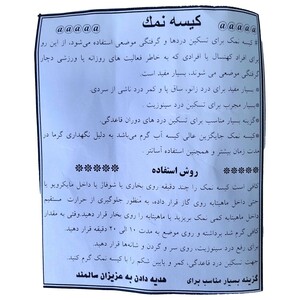 @@@@@ کیسه نمك @@@@@
*کیسه نمک برای تسکین دردها و گرفتگی موضعی استفاده می‌شود، از این رو
برای افراد کهنسال یا افرادی که به خاطر فعالیت های روزانه یا ورزشی دچار
گرفتگی موضعی می شوند، بسیار مفید است.
*بسیار مفید برای درد زانو، ساق پا و کمر درد ناشی از سردی.
*بسیار مجرب برای تسکین درد سینوزیت.
*گزینه بسیار مناسب برای تسکین درد های دوران قاعدگی.
*کیسه نمک جایگزین عالی کیسه آب گرم می‌باشد به دلیل نگهداری گرما در
مدت زمان بیشتر و همچنین استفاده آسانتر.
***** روش استفاده *****
کافی است کیسه نمک را چند دقیقه روی بخاری یا شوفاژ یا داخل مایکرویو یا
حتی داخل ماهیتابه روی گاز قرار داده، به منظور جلوگیری از حرارت مستقیم
ماهیتابه کمی نمک بریزید یا ماهیتابه را روی بخار قرار دهید.وقتی به مقدار
کافی گرم شد برداشته و روی موضع به مدت ۱۰ الی ۲۰ دقیقه قرار دهید.
برای رفع درد سینوزیت، روی سر و گردن و شانه‌ها قرار دهید.
جهت تسکین درد قاعدگی، کمر و پایین شکم را با کیسه نمک گرم کنید.
گزینه بسیار مناسب برای هدیه دادن به عزیزان سالمند